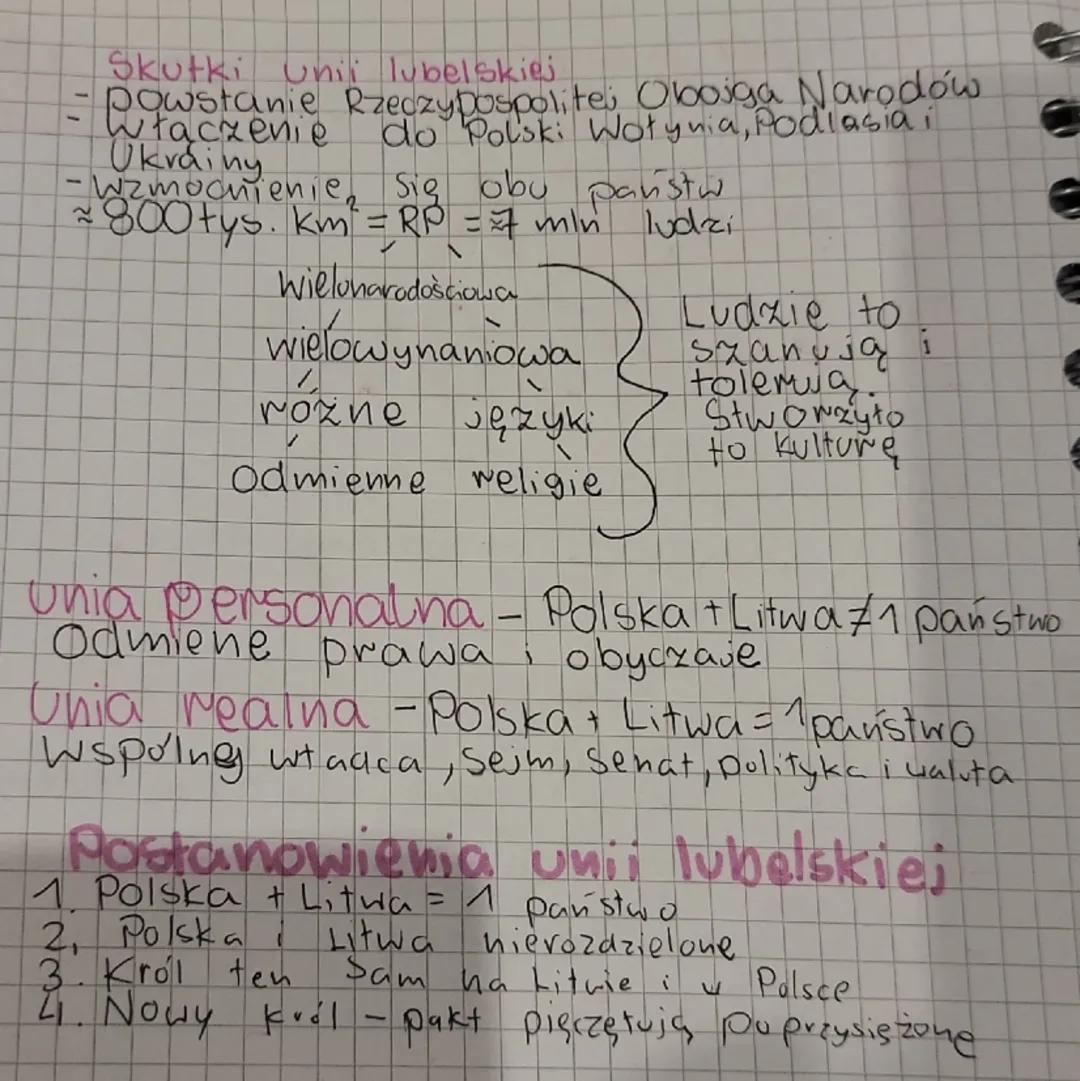 Skutki unii lubelskiej
- powstanie Rzeczypospolitej Obojga Narodów
- Włączenie do Polski Wołynia, Podlasia i
Ukrainy
- wzmocnienie się obu państw
≈ 800 tys. km² = RP = ≈7 mln ludzi
wielonarodościowa
wielowynaniowa
różne języki
odmienne religie
Ludzie to
szanują i
tolerują.
Stworzyło
to kulturę
Unia personalna - Polska + Litwa ≠ 1 państwo
Odmiene prawa i obyczaje
Unia realna - Polska + Litwa = 1 państwo
Wspólney władca, Sejm, Senat, polityka i waluta
Postanowienia unii lubelskiej
1. Polska + Litwa = 1 państwo
2. Polska i Litwa nierozdzielone
3. Król ten sam na Litwie i w Polsce
4. Nowy król - pakt pięczętują poprzysiężone